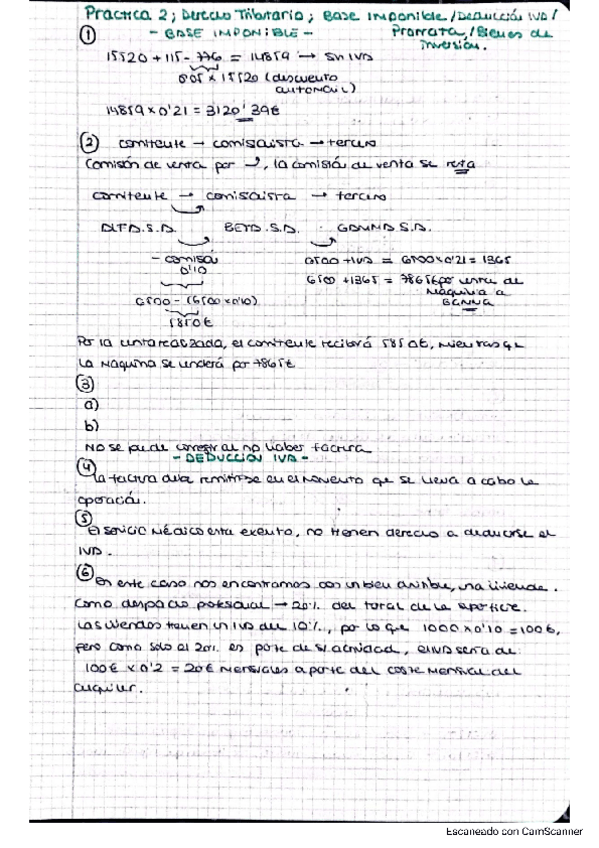 Practica 2; Derecho Tributario; Base Imponible/Deducción IVA/
① - BASE IMPONIBLE - Prorrata/Bienes de
Inversión.
15520 + 115 - 776 = 14859 → sin IVA
0'05 x 15520 (descuento
14859 x 0'21 = 3120'39€
② comitente → comisionista → tercero
Comisión de venta por , la comisión de venta se resta
comitente → comisionista → tercero
ALFA.S.A. BETA.S.A. GAMMA S.A.
- comisión 6500 + IVA = 6500 x 0'21 = 1365
0'10 6500 + 1365 = 7865€ por venta de
máquina a
6500 - (6500 x 0'10) GAMMA
5850€
Por la venta realizada, el comitente recibirá 5850€, mientras que
la máquina se venderá por 7865€
③
a)
b)
No se puede corregir al no haber factura
- DEDUCCION IVA -
④ la factura debe remitirse en el momento que se lleva a cabo la
operación.
⑤ El servicio médico esta exento, no tienen derecho a deducirse el
IVA.
⑥ En este caso nos encontramos con un bien , una vivienda.
Como despacho profesional → 20% del total de la superficie.
Las viviendas tienen un IVA del 10%, por lo que 1000 x 0'10 = 100€,
pero como solo el 20% es parte de su actividad, el IVA sería de:
100€ x 0'2 = 20€ mensuales a parte del coste mensual del
alquiler.
Escaneado con CamScanner